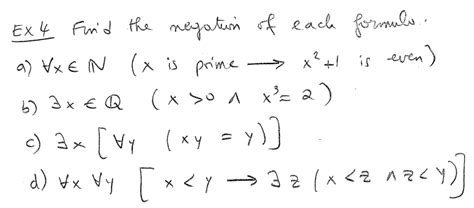 Ex 4 Find the negation of each formula.
a) ∀x ∈ ℕ (x is prime → x² + 1 is even)
b) ∃x ∈ ℚ (x > 0 ∧ x³ = 2)
c) ∃x [∀y (xy = y)]
d) ∀x ∀y [x < y → ∃z (x < z ∧ z < y)]